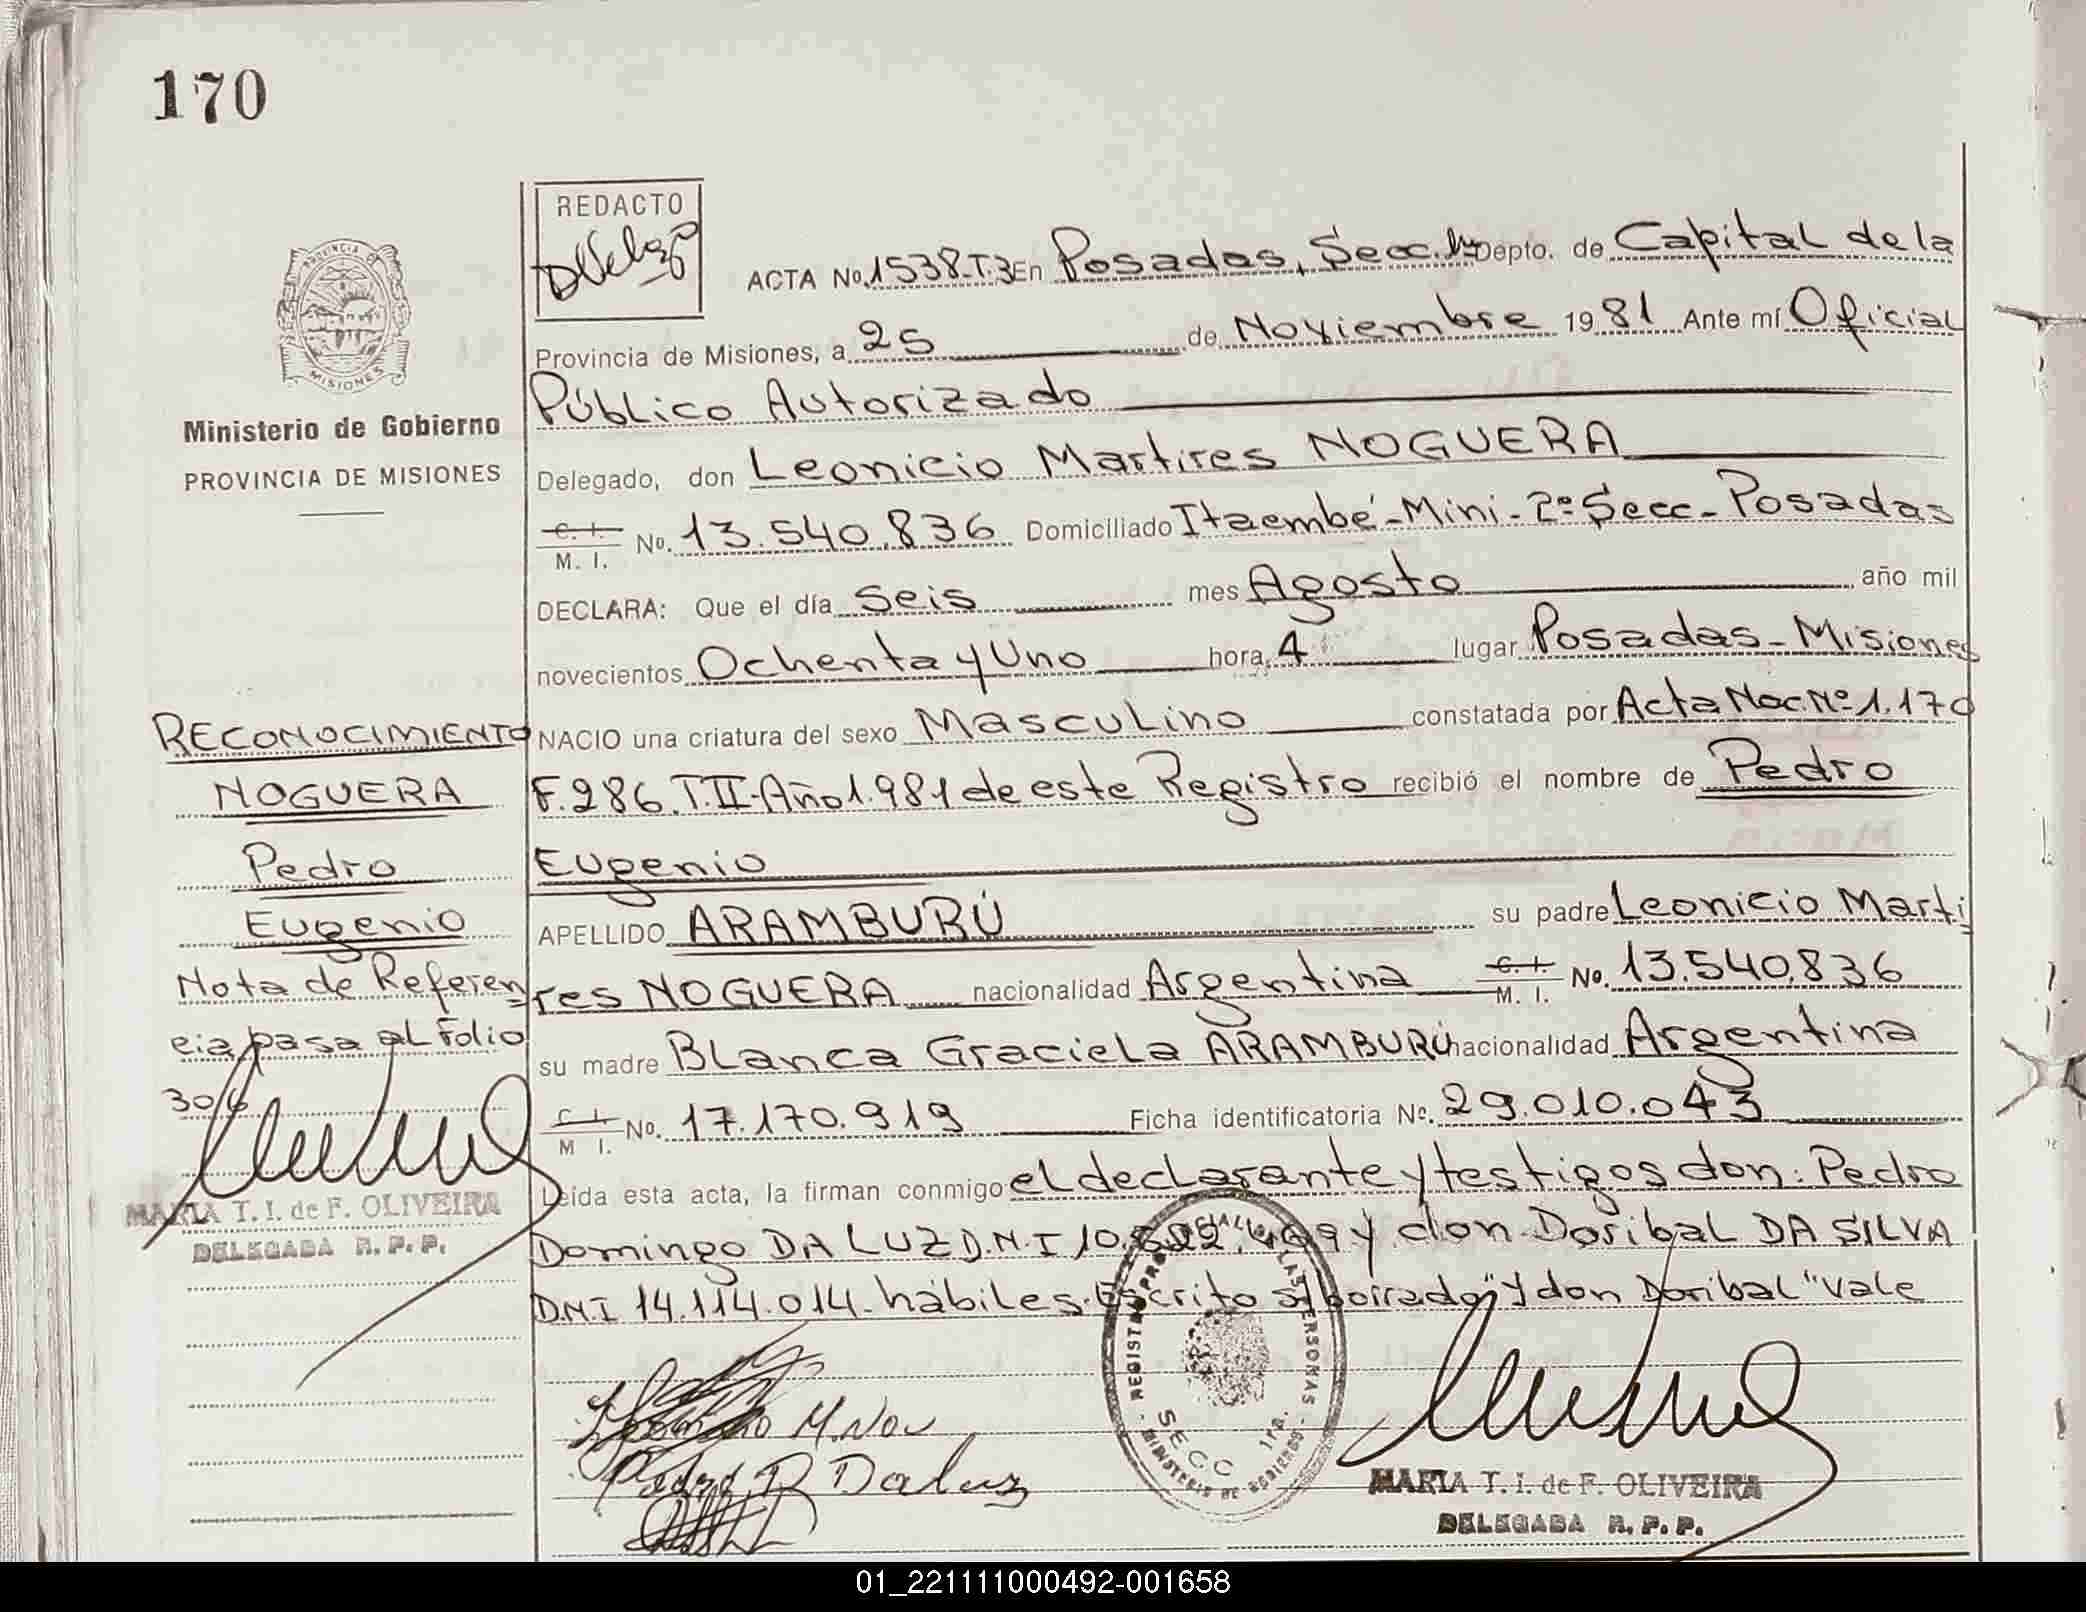 170
REDACTO
ACTA No. 1538-T.3 En Posadas, Secc. 1ª Depto. de Capital de la
Provincia de Misiones, a 25 de Noviembre 1981 Ante mí Oficial
Público Autorizado
Delegado, don Leonicio Martires NOGUERA
C. I.
M. I. No. 13.540.836 Domiciliado Itaembé-Mini-2º Secc-Posadas
DECLARA: Que el día Seis mes Agosto año mil
novecientos Ochenta y Uno hora 4 lugar Posadas-Misiones
NACIO una criatura del sexo Masculino constatada por Acta Nac Nº 1.170
F.286.T.II-Año 1.981 de este Registro recibió el nombre de Pedro
Eugenio
APELLIDO ARAMBURÚ su padre Leonicio Marti
res NOGUERA nacionalidad Argentina C. I. M. I. No. 13.540.836
su madre Blanca Graciela ARAMBURÚ nacionalidad Argentina
C. I.
M I. No. 17.170.919 Ficha identificatoria Nº. 29.010.043
Leída esta acta, la firman conmigo el declarante y testigos don: Pedro
Domingo DA LUZ D.N.I 10. y don Doribal DA SILVA
D.N.I 14.114.014. hábiles. Escrito s/borrado "y don Doribal" Vale
PROVINCIA DE
MISIONES
Ministerio de Gobierno
PROVINCIA DE MISIONES
RECONOCIMIENTO
NOGUERA
Pedro
Eugenio
Nota de Referen
cia pasa al Folio
306
MARIA T. I. de F. OLIVEIRA
DELEGADA R. P. P.
M. Nog
Pedro D Daluz
REGISTRO PROVINCIAL DE LAS PERSONAS - MINISTERIO DE GOBIERNO -
SECC 1ra.
MARIA T. I. de F. OLIVEIRA
DELEGADA R. P. P.
01_221111000492-001658